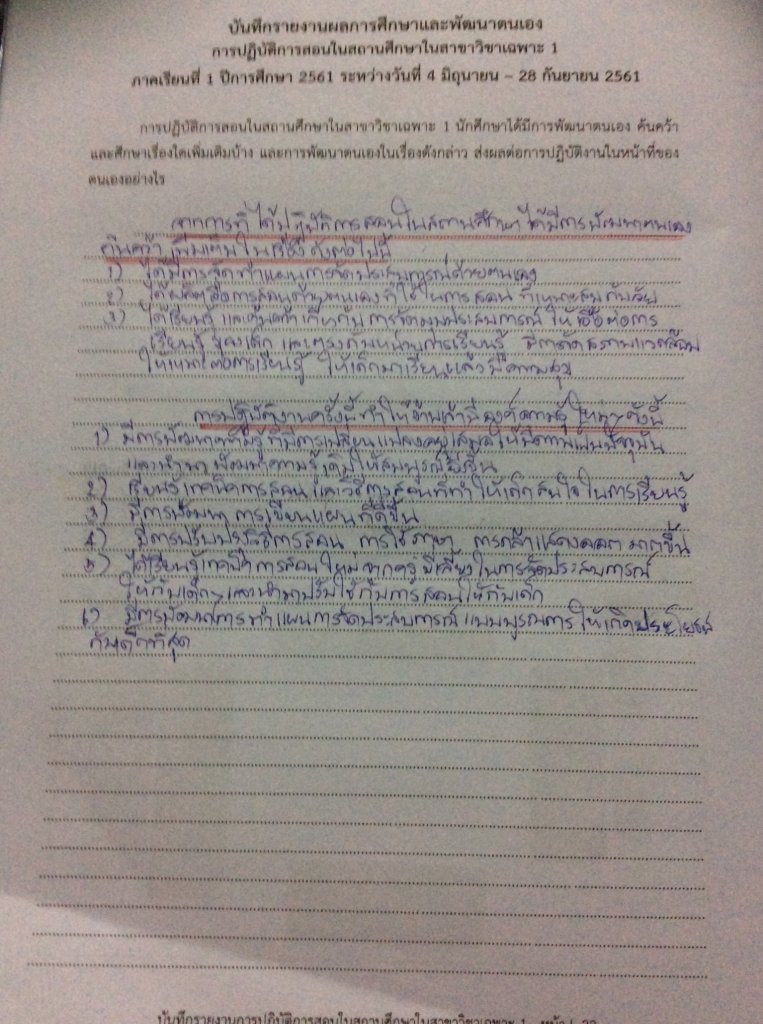 บันทึกรายงานผลการศึกษาและพัฒนาตนเอง
การปฏิบัติการสอนในสถานศึกษาในสาขาวิชาเฉพาะ 1
ภาคเรียนที่ 1 ปีการศึกษา 2561 ระหว่างวันที่ 4 มิถุนายน – 28 กันยายน 2561
การปฏิบัติการสอนในสถานศึกษาในสาขาวิชาเฉพาะ 1 นักศึกษาได้มีการพัฒนาตนเอง ค้นคว้า
และศึกษาเรื่องใดเพิ่มเติมบ้าง และการพัฒนาตนเองในเรื่องดังกล่าว ส่งผลต่อการปฏิบัติงานในหน้าที่ของ
ตนเองอย่างไร
จากการที่ได้ปฏิบัติการสอนในสถานศึกษา ได้มีการพัฒนาตนเอง
ค้นคว้า เพิ่มเติมในเรื่อง ดังต่อไปนี้
1) ได้มีการจัดทำแผนการจัดประสบการณ์ด้วยตนเอง
2) ได้ผลิตสื่อการสอนด้วยตนเองที่ใช้ในการสอน ที่เหมาะสมกับวัย
3) ได้เรียนรู้ และค้นคว้าเกี่ยวกับ การจัดมุมประสบการณ์ ให้เอื้อต่อการ
เรียนรู้ ของเด็ก และตรงกับหน่วยการเรียนรู้ มีการจัดสภาพแวดล้อม
ให้เหมาะต่อการเรียนรู้ ให้เด็กมาเรียนแล้วมีความสุข
การปฏิบัติงานครั้งนี้ทำให้ข้าพเจ้ามีองค์ความรู้ใหม่ๆ ดังนี้
1) มีการพัฒนาความรู้ ที่มีการเปลี่ยนแปลงอยู่เสมอให้มีความเป็นปัจจุบัน
และนำมาพัฒนาความรู้เดิมให้สมบูรณ์ยิ่งขึ้น
2) เรียนรู้เทคนิคการสอน และวิธีการสอนที่ทำให้เด็กสนใจในการเรียนรู้
3) มีการพัฒนา การเขียนแผนที่ดีขึ้น
4) มีการปรับปรุงวิธีการสอน การใช้ภาษา การกล้าแสดงออก มากขึ้น
5) ได้เรียนรู้เทคนิคการสอนใหม่ จากครูพี่เลี้ยงในการจัดประสบการณ์
ให้กับเด็ก และนำมาปรับใช้กับการสอนให้กับเด็ก
6) มีการพัฒนาการทำแผนการจัดประสบการณ์ แบบบูรณาการ ให้เกิดประโยชน์
กับเด็กที่สุด
บันทึกรายงานการปฏิบัติการสอนในสถานศึกษาในสาขาวิชาเฉพาะ 1